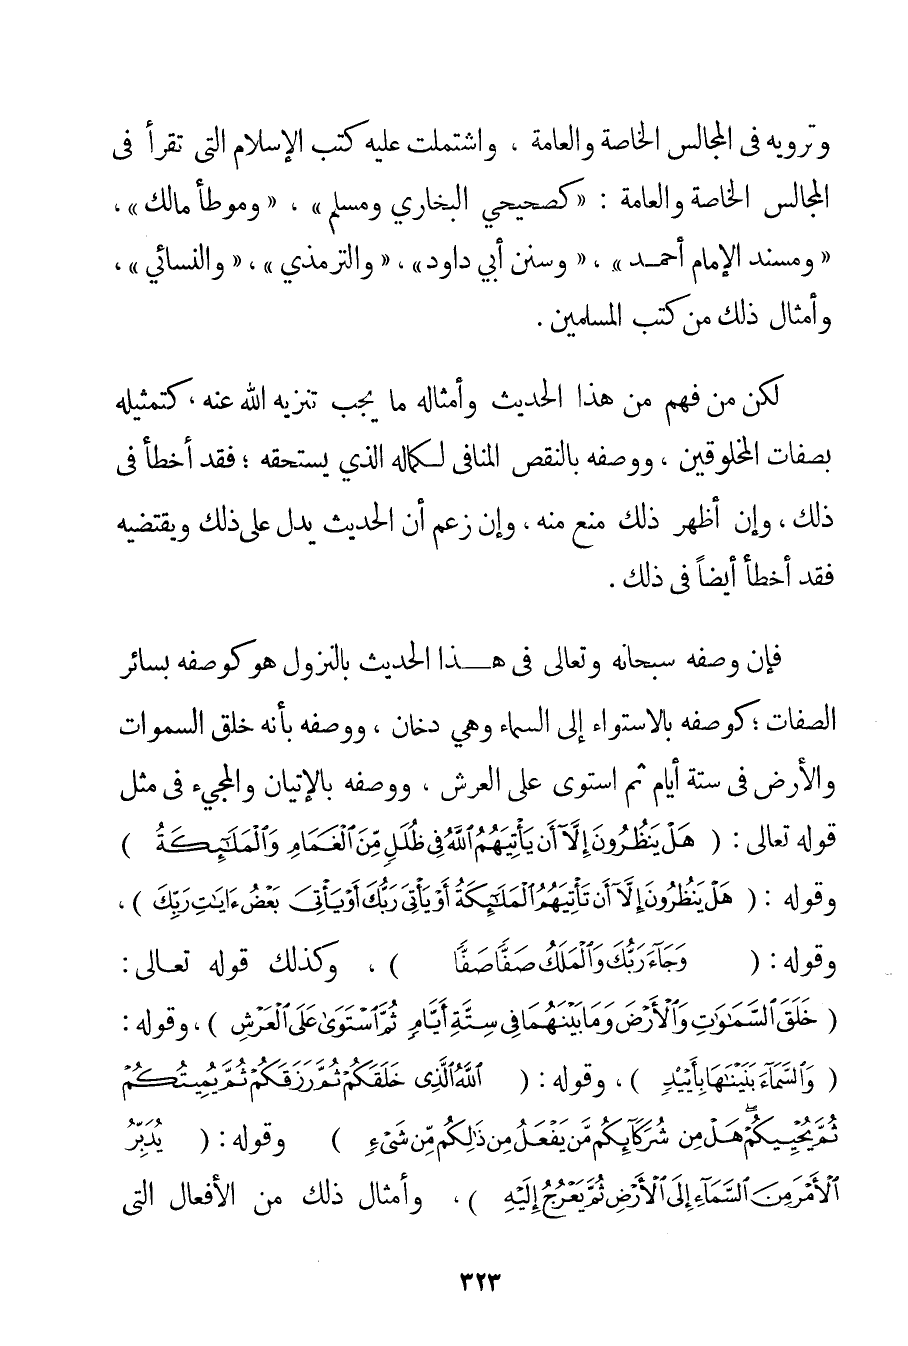 وترويه فى المجالس الخاصة والعامة ، واشتملت عليه كتب الإسلام التى تقرأ فى
المجالس الخاصة والعامة : « كصحيحي البخاري ومسلم » ، « وموطأ مالك » ،
« ومسند الإمام أحمد » ، « وسنن أبي داود » ، « والترمذي » ، « والنسائي » ،
وأمثال ذلك من كتب المسلمين .
لكن من فهم من هذا الحديث وأمثاله ما يجب تنزيه الله عنه ، كتمثيله
بصفات المخلوقين ، ووصفه بالنقص المنافى لكماله الذي يستحقه ؛ فقد أخطأ فى
ذلك ، وإن أظهر ذلك منع منه ، وإن زعم أن الحديث يدل على ذلك ويقتضيه
فقد أخطأ أيضاً فى ذلك .
فإن وصفه سبحانه وتعالى فى هذا الحديث بالنزول هو كوصفه بسائر
الصفات ؛ كوصفه بالاستواء إلى السماء وهي دخان ، ووصفه بأنه خلق السموات
والأرض فى ستة أيام ثم استوى على العرش ، ووصفه بالإتيان والمجيء فى مثل
قوله تعالى : ( هَلْ يَنظُرُونَ إِلَّآ أَن يَأْتِيَهُمُ ٱللَّهُ فِى ظُلَلٍ مِّنَ ٱلْغَمَامِ وَٱلْمَلَٰٓئِكَةُ )
وقوله : ( هَلْ يَنظُرُونَ إِلَّآ أَن تَأْتِيَهُمُ ٱلْمَلَٰٓئِكَةُ أَوْ يَأْتِىَ رَبُّكَ أَوْ يَأْتِىَ بَعْضُ ءَايَٰتِ رَبِّكَ ) ،
وقوله : ( وَجَآءَ رَبُّكَ وَٱلْمَلَكُ صَفًّا صَفًّا ) ، وكذلك قوله تعالى :
( خَلَقَ ٱلسَّمَٰوَٰتِ وَٱلْأَرْضَ وَمَا بَيْنَهُمَا فِى سِتَّةِ أَيَّامٍ ثُمَّ ٱسْتَوَىٰ عَلَى ٱلْعَرْشِ ) ، وقوله :
( وَٱلسَّمَآءَ بَنَيْنَٰهَا بِأَيْيْدٍ ) ، وقوله : ( ٱللَّهُ ٱلَّذِى خَلَقَكُمْ ثُمَّ رَزَقَكُمْ ثُمَّ يُمِيتُكُمْ
ثُمَّ يُحْيِيكُمْ ۖ هَلْ مِن شُرَكَآئِكُم مَّن يَفْعَلُ مِن ذَٰلِكُم مِّن شَىْءٍ ) وقوله : ( يُدَبِّرُ
ٱلْأَمْرَ مِنَ ٱلسَّمَآءِ إِلَى ٱلْأَرْضِ ثُمَّ يَعْرُجُ إِلَيْهِ ) ، وأمثال ذلك من الأفعال التى
٣٢٣